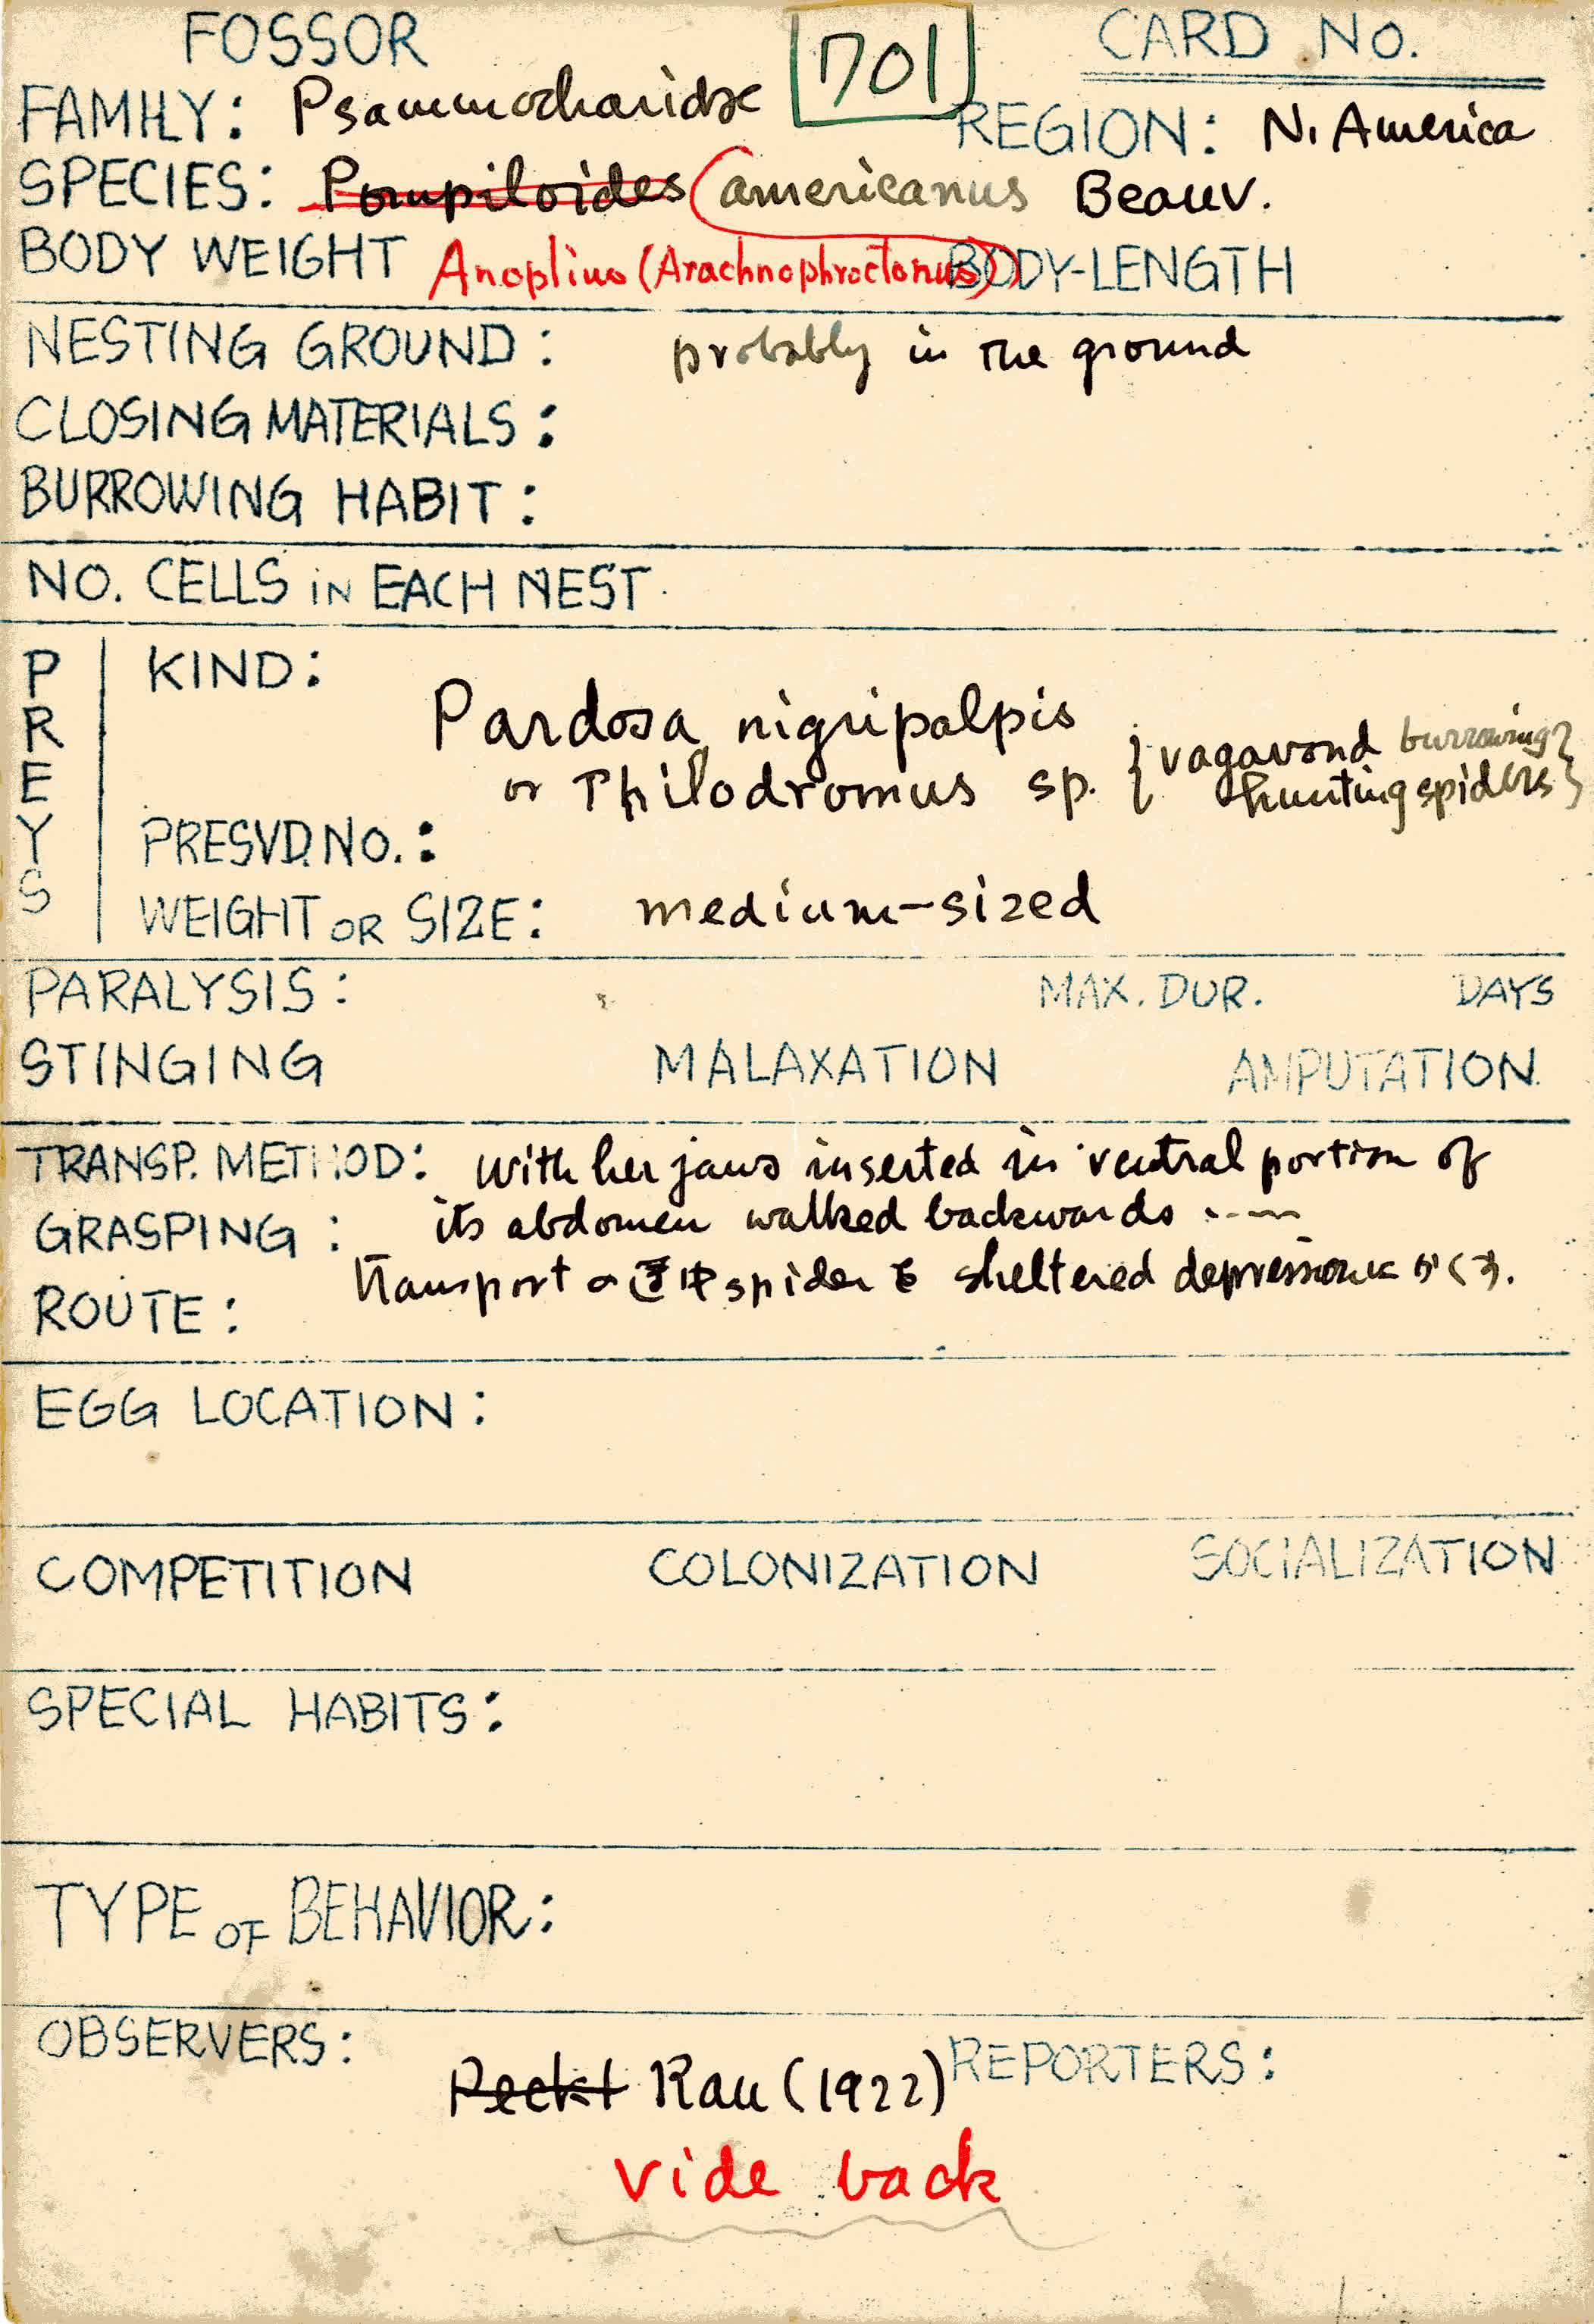 FOSSOR 701 CARD No.
FAMILY: Psammocharidæ REGION: N. America
SPECIES: Pompiloides americanus Beauv.
BODY WEIGHT Anoplius (Arachnophroctonus) BODY-LENGTH
NESTING GROUND: probably in the ground
CLOSING MATERIALS:
BURROWING HABIT:
NO. CELLS iN EACH NEST
PREYS
KIND:
Pardosa nigripalpis
or Philodromus sp. { vagavond burrowing
hunting spiders }
PRESVD. NO.:
WEIGHT OR SIZE: medium-sized
PARALYSIS: MAX. DUR. DAYS
STINGING MALAXATION AMPUTATION
TRANSP. METHOD: with her jaws inserted in ventral portion of
GRASPING: its abdomen walked backwards
Transport の途中 spider を sheltered depression におく事.
ROUTE:
EGG LOCATION:
COMPETITION COLONIZATION SOCIALIZATION
SPECIAL HABITS:
TYPE OF BEHAVIOR:
OBSERVERS: REPORTERS:
Peckt Rau (1922)
vide back